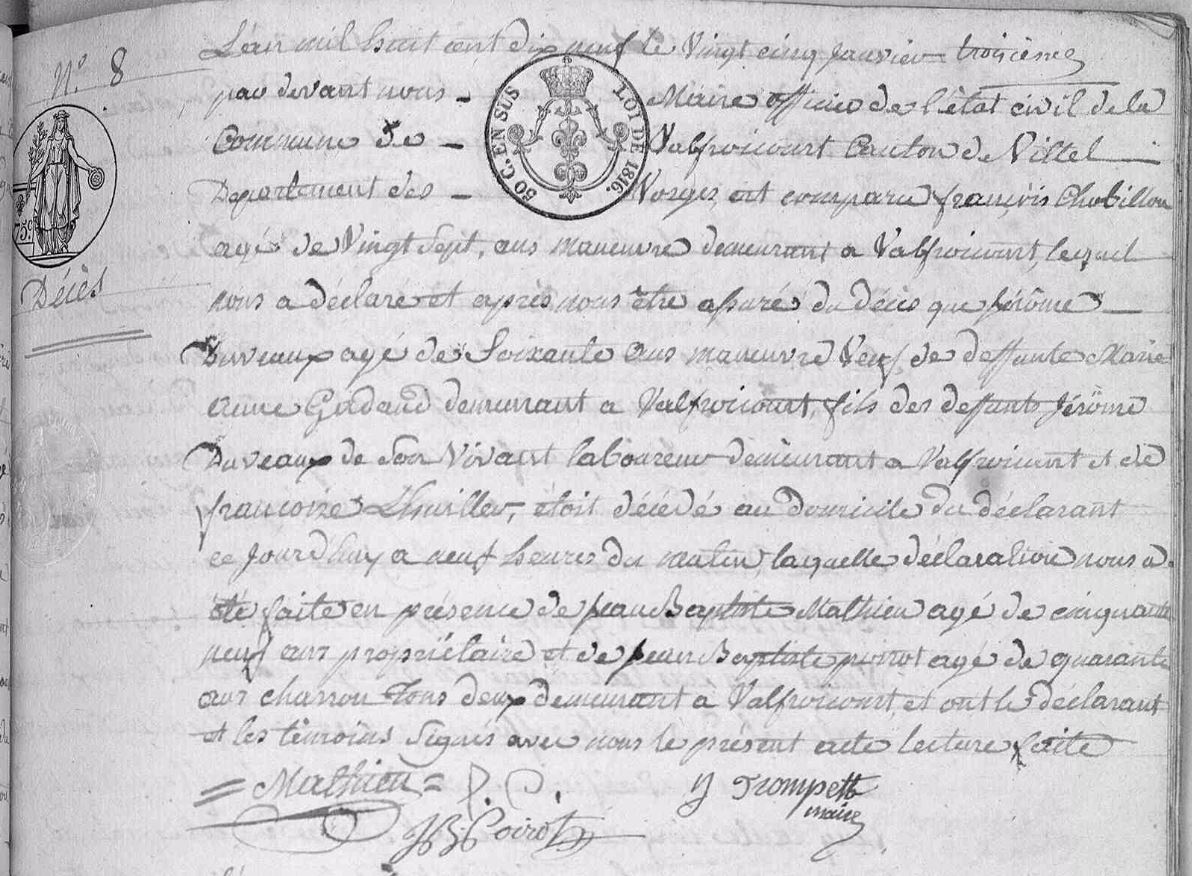 N.° 8
75 c.
Décès
50 C. EN SUS LOI DE 1816.
L'an mil huit cent dix neuf le Vingt cinq Janvier
par devant nous Maire officier de l'état civil de la
Commune de Valfroicourt Canton de Vittel
Departement des Vosges, ont comparu françois Chobillon
agé de Vingt Sept, ans maneuvre demeurant a Valfroicourt, lequel
nous a déclaré et après nous être assuré du décès que Jérôme
Duveaux agé de Soixante ans maneuvre Veuf de deffunte Marie
anne demeurant a Valfroicourt, fils des deffunts Jérôme
Duveaux de son Vivant laboureur demeurant a Valfroicourt et de
françoise Lhuiller, étoit décédé au domicile du déclarant
ce Jourdhuy a neuf heures du matin, laquelle déclaration nous a
été faite en présence de Jean Baptiste Mathieu agé de cinquante
neuf ans propriétaire et de Jean Baptiste poirot agé de quarante
ans charron Tous deux demeurant a Valfroicourt, et ont le déclarant
et les témoins Signés avec nous le présent acte lecture faite
Mathieu
J Trompette
maire
JB Poirot